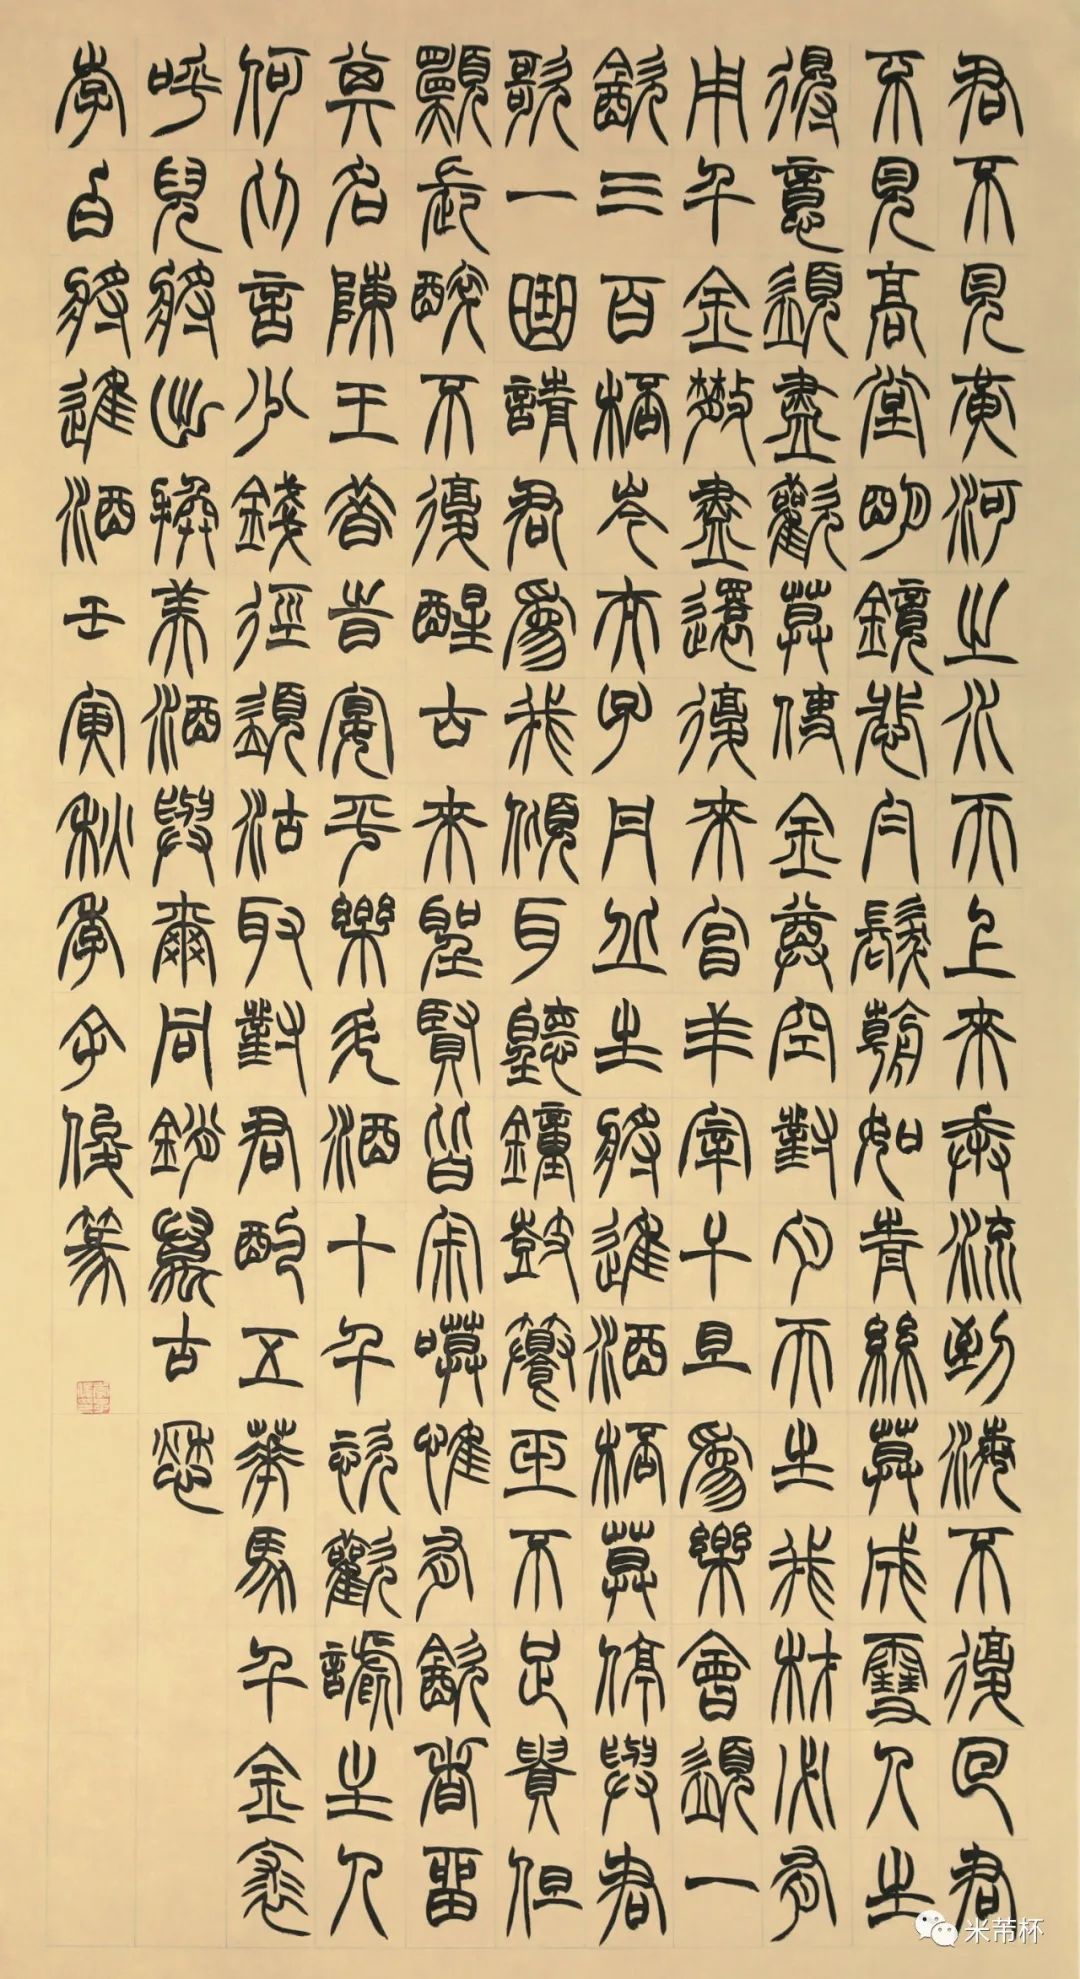 君不見黃河之水天上來奔流到海不復回君
不見高堂明鏡悲白髮朝如青絲莫成雪人生
得意須盡歡莫使金尊空對月天生我材必有
用千金散盡還復來亯羊宰牛且為樂會須一
飲三百桮岑夫子丹丘生將進酒桮莫停與君
歌一曲請君為我傾耳聽鐘鼓饌玉不足貴但
願長醉不復醒古來聖賢皆宗嘆惟有飲者留
其名陳王昔時宴平樂斗酒十千恣歡謔主人
何為言少錢徑須沽取對君酌五華馬千金裘
呼兒將出換美酒與爾同銷萬古愁
李白將進酒壬寅秋李子俊篆
米芾杯